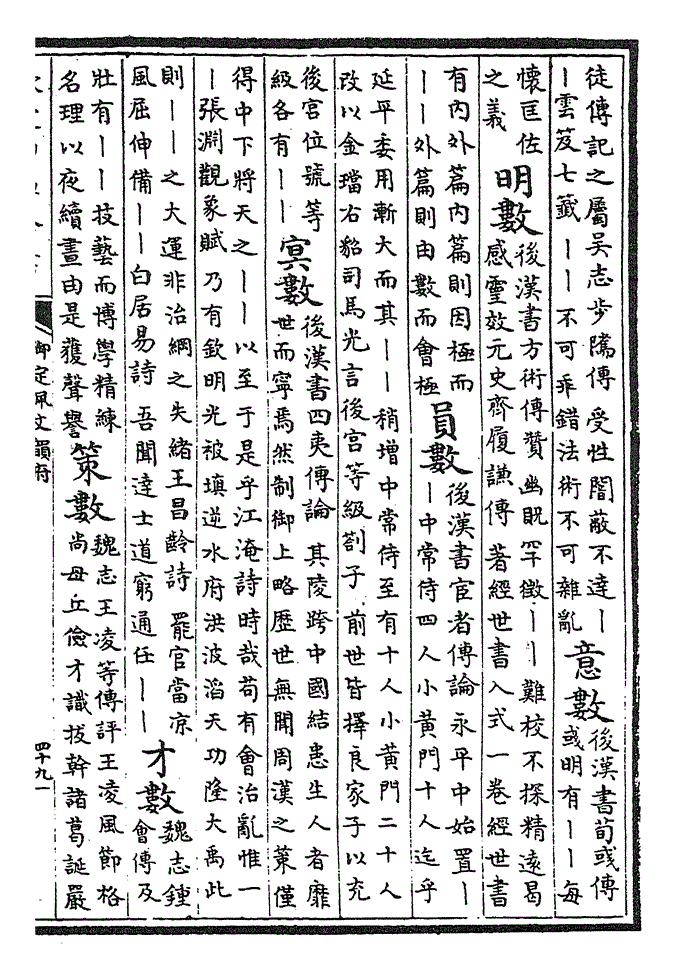 徒傳記之屬吳志步隲傳 受性闇蔽不達丨
丨雲笈七籤 丨丨不可乖錯法術不可雜亂
意數
後漢書荀彧傳
彧明有丨丨每
懷匡佐
之義
明數
後漢書方術傳贊幽貺罕徵丨丨難校不探精遠曷
感靈效元史齊履謙傳 著經世書入式一卷經世書
有內外篇內篇則因極而
丨丨外篇則由數而會極
員數
後漢書宦者傳論 永平中始置丨
丨中常侍四人小黃門十人迄乎
延平委用漸大而其丨丨稍增中常侍至有十人小黃門二十人
改以金璫右貂司馬光言後宮等級劄子 前世皆擇良家子以充
後宮位號等
級各有丨丨
冥數
後漢書四夷傳論 其陵跨中國結患生人者靡
世而寧焉然制御上略歷世無聞周漢之策僅
得中下將天之丨丨以至于是乎江淹詩時哉苟有會治亂惟一
丨張淵觀象賦 乃有欽明光被填逆水府洪波滔天功隆大禹此
則丨丨之大運非治綱之失緒王昌齡詩 罷官當凉
風屈伸備丨丨白居易詩 吾聞達士道窮通任丨丨
才數
魏志鍾
會傳及
壯有丨丨技藝而博學精練
名理以夜續晝由是獲聲譽
策數
魏志王凌等傳評王凌風節格
尚毋丘儉才識拔幹諸葛誕嚴
御定佩文韻府
四十九一